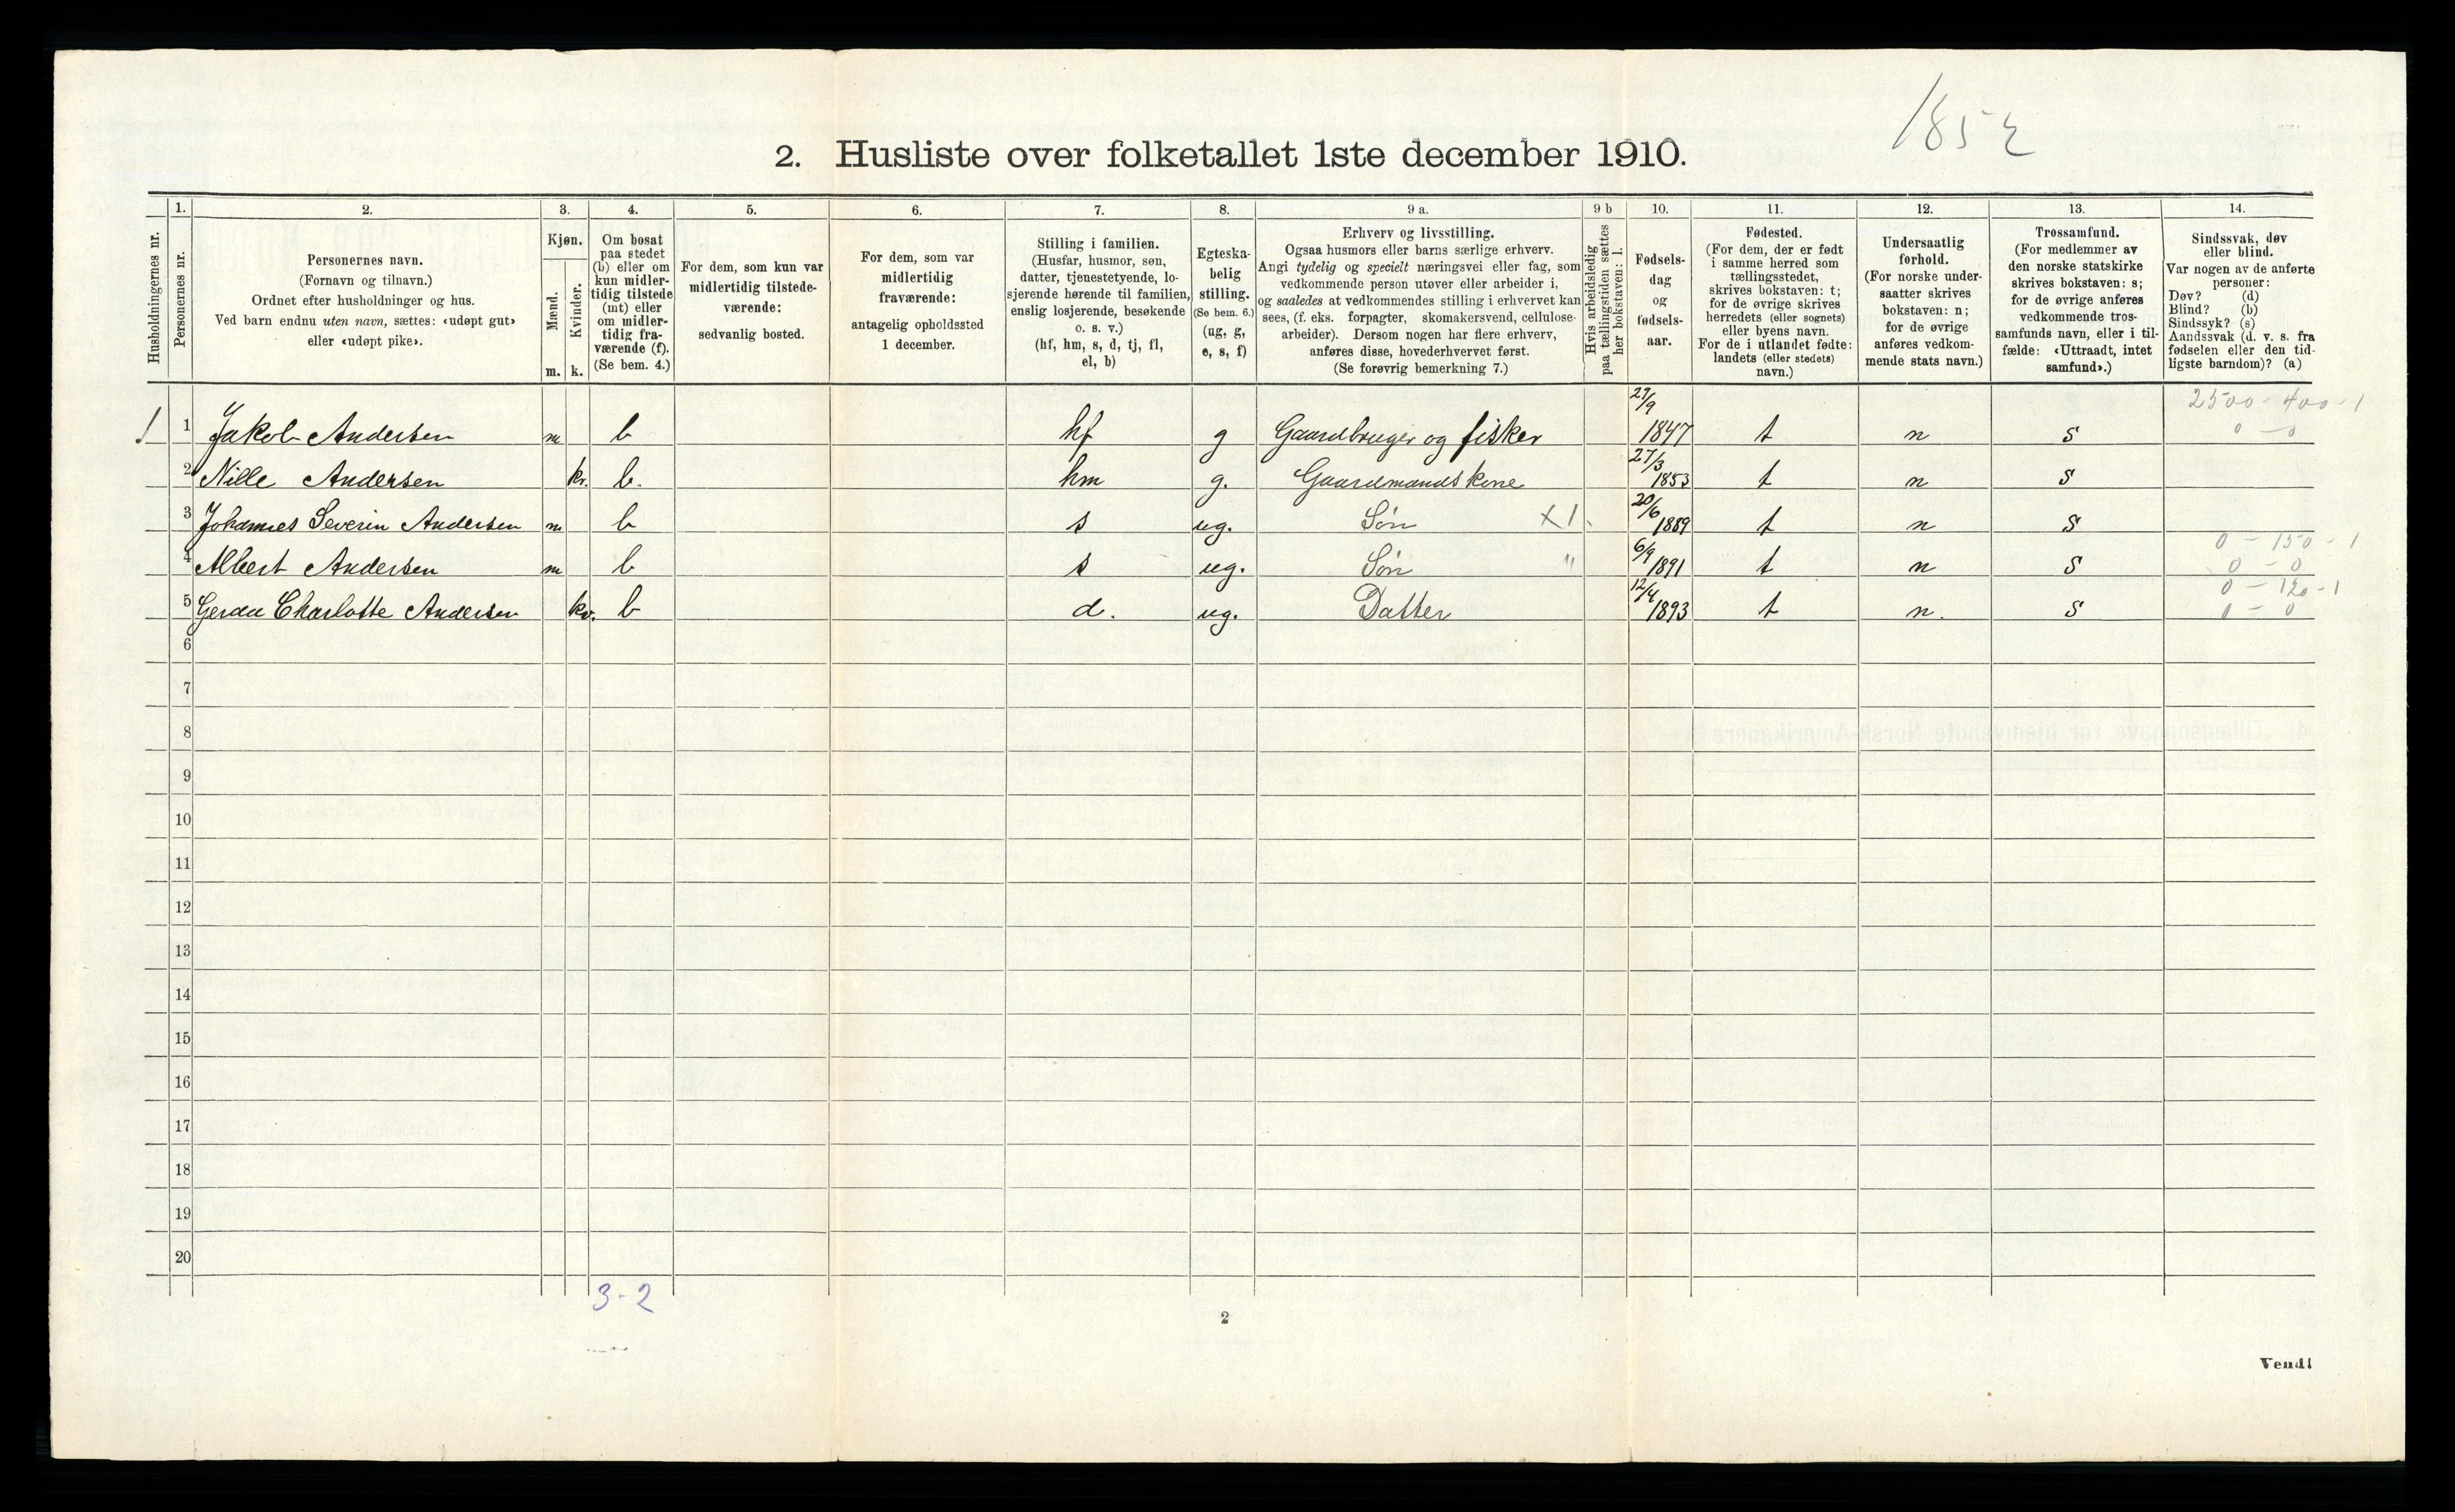 1852
2. Husliste over folketallet 1ste december 1910.
1. 2. 3. 4. 5. 6. 7. 8. 9 a. 9 b 10. 11. 12. 13. 14.
Husholdningernes nr.
Personernes nr.
Personernes navn.
(Fornavn og tilnavn.)
Ordnet efter husholdninger og hus.
Ved barn endnu uten navn, sættes: «udøpt gut»
eller «udøpt pike».
Kjøn.
Mænd.
Kvinder.
m. k.
Om bosat
paa stedet
(b) eller om
kun midler-
tidig tilstede
(mt) eller
om midler-
tidig fra-
værende (f).
(Se bem. 4.)
For dem, som kun var
midlertidig tilstede-
værende:
sedvanlig bosted.
For dem, som var
midlertidig
fraværende:
antagelig opholdssted
1 december.
Stilling i familien.
(Husfar, husmor, søn,
datter, tjenestetyende, lo-
sjerende hørende til familien,
enslig losjerende, besøkende
o. s. v.)
(hf, hm, s, d, tj, fl,
el, b)
Egteska-
belig
stilling.
(Se bem. 6.)
(ug, g,
e, s, f)
Erhverv og livsstilling.
Ogsaa husmors eller barns særlige erhverv.
Angi tydelig og specielt næringsvei eller fag, som
vedkommende person utøver eller arbeider i,
og saaledes at vedkommendes stilling i erhvervet kan
sees, (f. eks. forpagter, skomakersvend, cellulose-
arbeider). Dersom nogen har flere erhverv,
anføres disse, hovederhvervet først.
(Se forøvrig bemerkning 7.)
Hvis arbeidsledig
paa tællingstiden sættes
her bokstaven: l.
Fødsels-
dag
og
fødsels-
aar.
Fødested.
(For dem, der er født
i samme herred som
tællingsstedet,
skrives bokstaven: t;
for de øvrige skrives
herredets (eller sognets)
eller byens navn.
For de i utlandet fødte:
landets (eller stedets)
navn.)
Undersaatlig
forhold.
(For norske under-
saatter skrives
bokstaven: n;
for de øvrige
anføres vedkom-
mende stats navn.)
Trossamfund.
(For medlemmer av
den norske statskirke
skrives bokstaven: s;
for de øvrige anføres
vedkommende tros-
samfunds navn, eller i til-
fælde: «Uttraadt, intet
samfund».)
Sindssvak, døv
eller blind.
Var nogen av de anførte
personer:
Døv? (d)
Blind? (b)
Sindssyk? (s)
Aandssvak (d. v. s. fra
fødselen eller den tid-
ligste barndom)? (a)
1 1 Jakob Andersen m b hf g Gaardbruger og fisker 27/9 1847 t n s 2500 - 400 - 1
0 - 0
2 Nille Andersen kv. b. hm g. Gaardmandskone 27/3 1853 t n s
3 Johannes Severin Andersen m b s ug. Søn X 1 20/6 1889 t n s
0 - 150 - 1
4 Albert Andersen m b s ug. Søn " 6/9 1891 t n s 0 - 0
0 - 120 - 1
5 Gerda Charlotte Andersen kv. b d. ug. Datter 12/4 1893 t n. s 0 - 0
6
7
8
9
10
11
12
13
14
15
16
17
18
19
20
3-2
2
Vend!